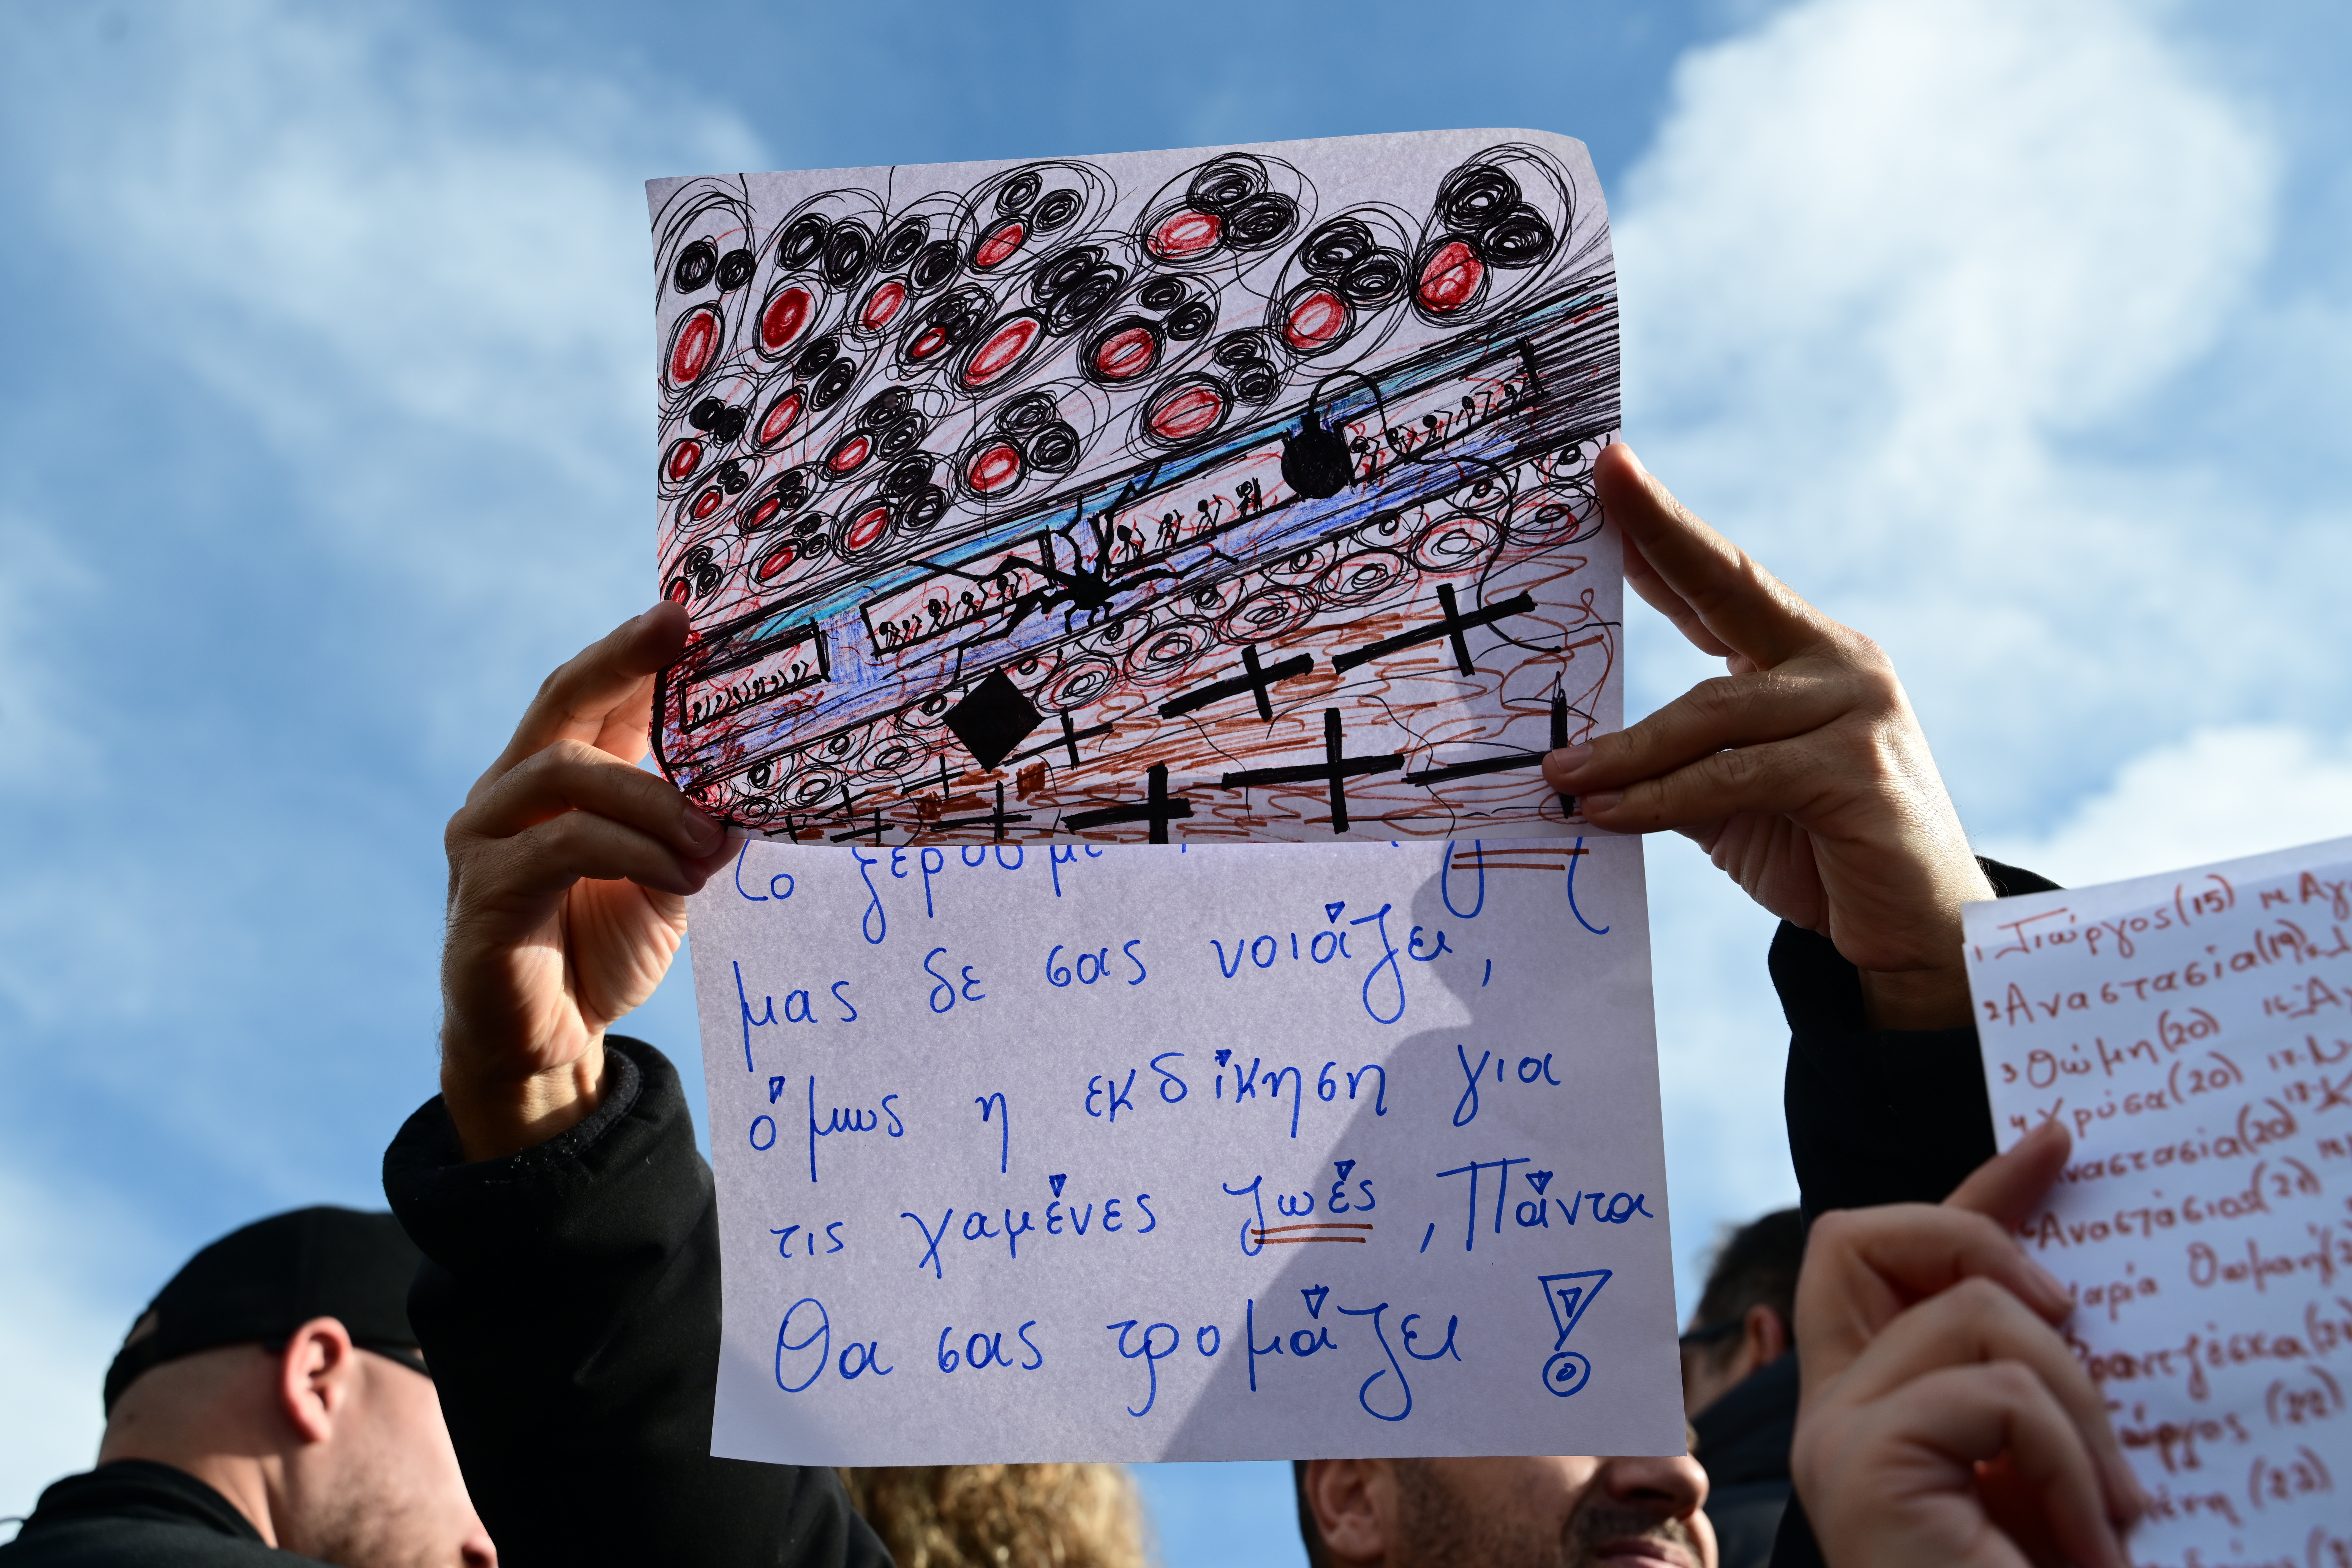 Το ξέρουμε
μας δε σας νοιάζει,
όμως η εκδίκηση για
τις χαμένες ζωές, Πάντα
Θα σας τρομάζει!
1. Γιώργος (15)
2. Αναστασία (19)
3 Θώμη (20)
4 Χρύσα (20)
Αναστασία (20)
Αναστάσιος (21)
Μαρία Θωμαή (2
Φραντζέσκα (2
Γιώργος (22)
(23)